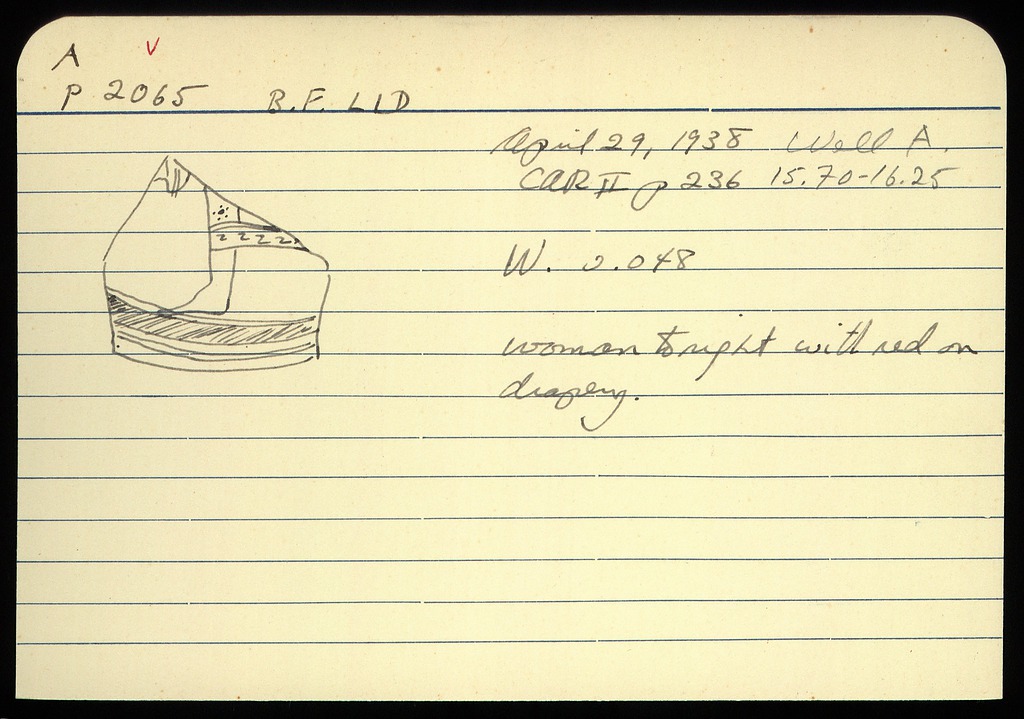 A v
P 2065 B.F. LID
April 29, 1938 Well A.
CAR II p 236 15.70-16.25
W. 0.048
woman to right with red on
drapery.